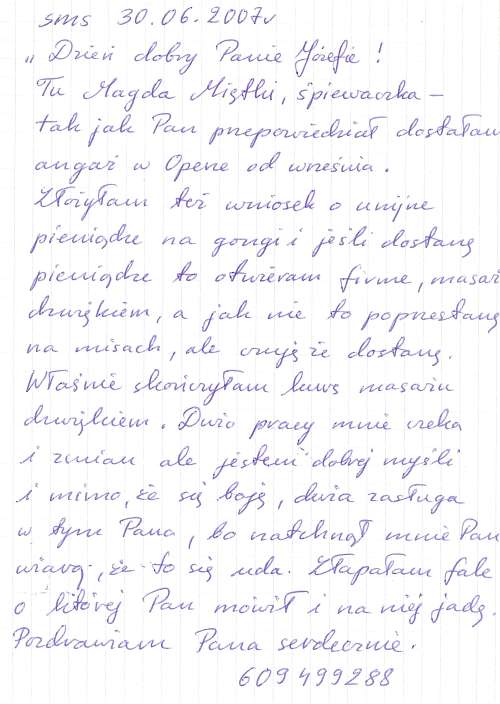 sms 30.06.2007r
„Dzień dobry Panie Józefie!
Tu Magda Miętki, śpiewaczka –
tak jak Pan przepowiedział dostałam
angaż w Operze od września.
Złożyłam też wniosek o unijne
pieniądze na gongi i jeśli dostanę
pieniądze to otwieram firmę, masaż
dźwiękiem, a jak nie to poprzestanę
na misach, ale czuję że dostanę.
Właśnie skończyłam kurs masażu
dźwiękiem. Dużo pracy mnie czeka
i zmian ale jestem dobrej myśli
i mimo, że się boję, duża zasługa
w tym Pana, bo natchnął mnie Pan
wiarą, że to się uda. Złapałam falę
o której Pan mówił i na niej jadę.
Pozdrawiam Pana serdecznie.
609499288